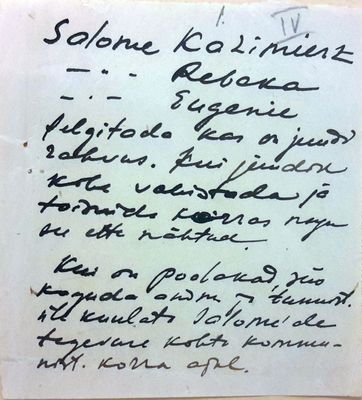 IV
Salome Kazimierz
— " — Rebeka
— " — Eugenie
selgitada kas on juudi
rahvus. Kui juudid
kohe vahistada ja
toimida korras nagu
see ette nähtud.
Kui on poolakad, siis
koguda andm. ja tunnist.
üle kuulata Salome'de
tegevuse kohta kommu-
nist. korra ajal.